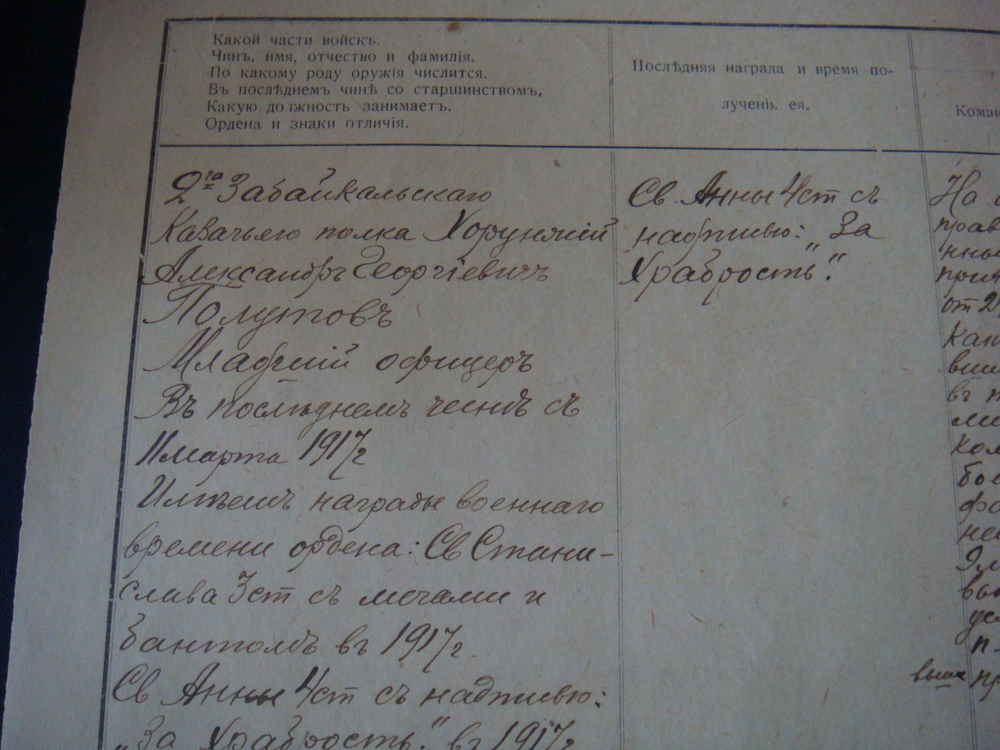 Какой части войскъ.
Чинъ, имя, отчество и фамилія.
По какому роду оружія числится.
Въ послѣднемъ чинѣ со старшинствомъ,
Какую должность занимаетъ.
Ордена и знаки отличія.
Послѣдняя награда и время по-
лученія ея.
Коман
2го Забайкальскаго
Казачьяго полка Хорунжій
Александръ Георгіевичъ
Полутовъ
Младшій офицеръ
Въ послѣднемъ чинѣ съ
11 марта 1917 г
Имѣетъ награды военнаго
времени ордена: Св Стани-
слава 3 ст съ мечами и
бантомъ въ 1917 г.
Св Анны 4 ст съ надписью:
„За Храбрость." въ 1917 г
Св. Анны 4 ст съ
надписью: „За
Храбрость".
На
прав
ины
при
от 2
Кан
вши
въ п
ми
Ком
бое
фа
не
Эм
вы
ус
п-
выше пр